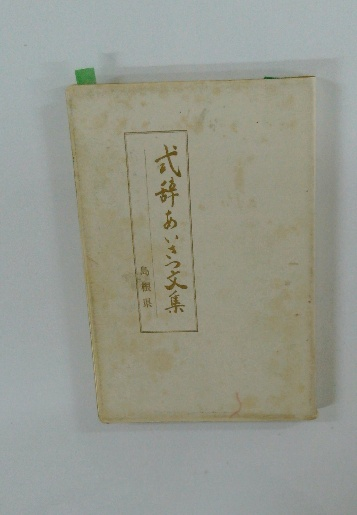 式辞あいさつ文集
島根県